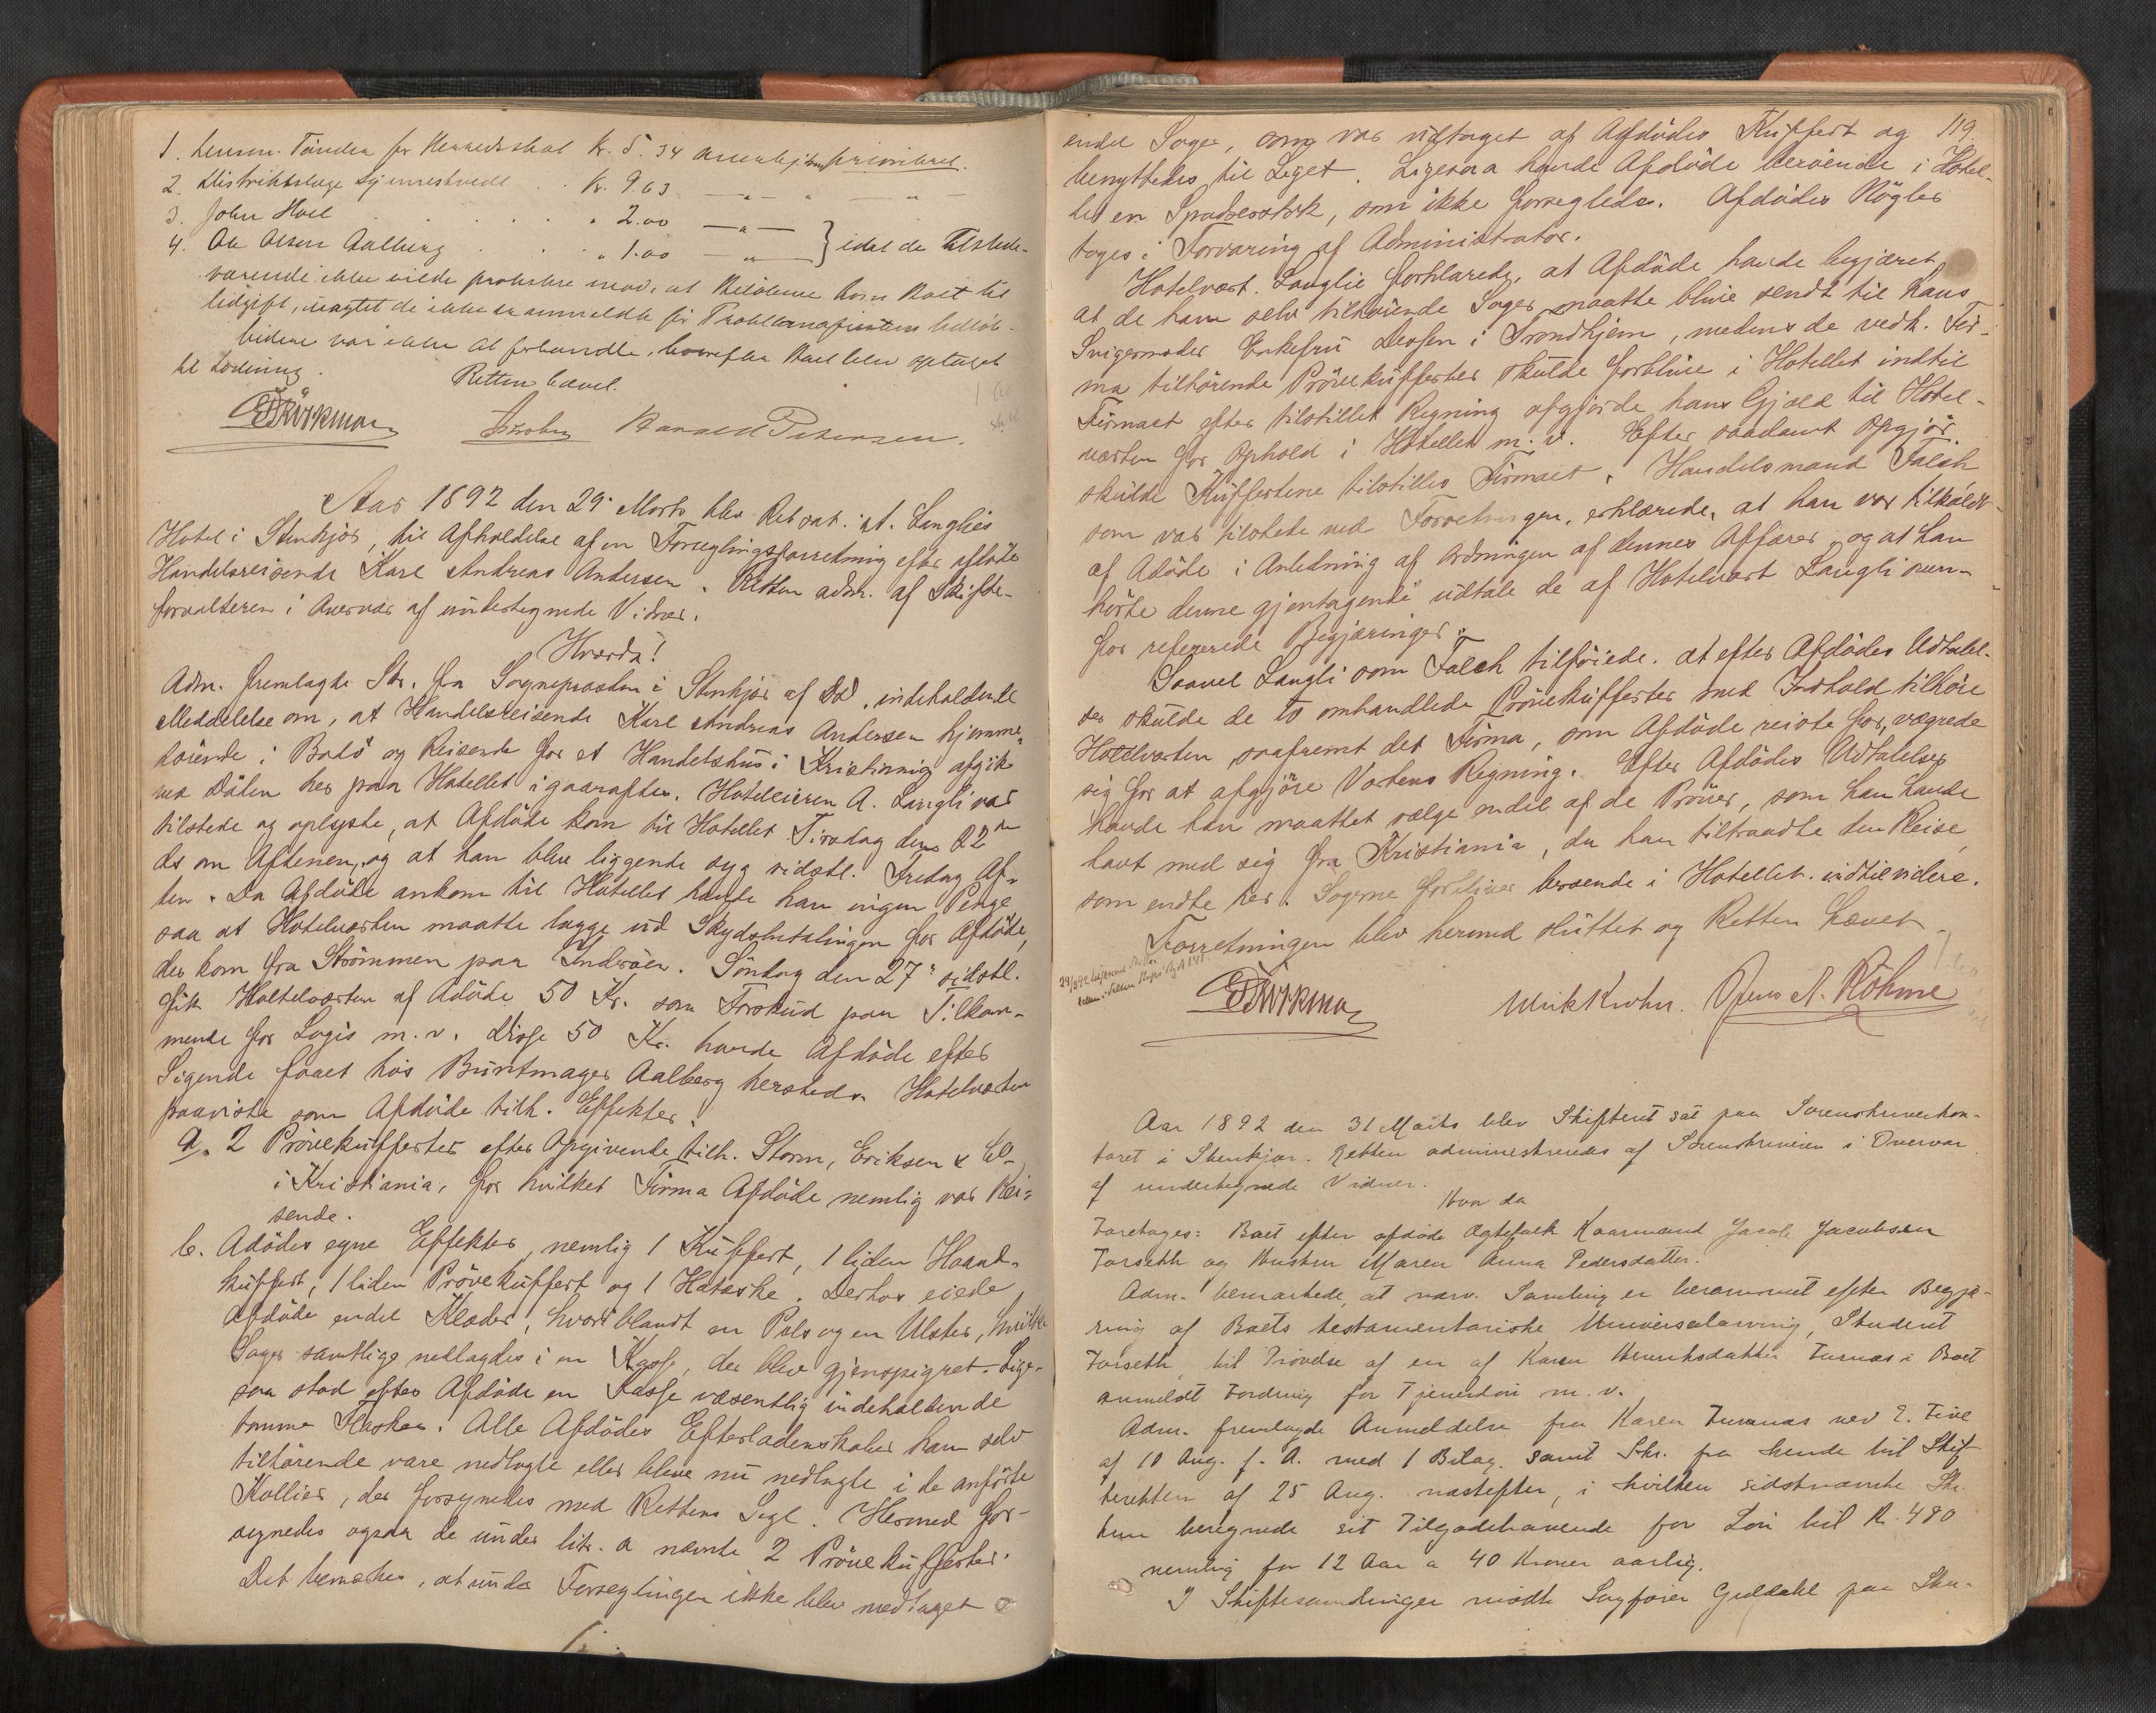 1. Lensm. Tønder for Herredsskat Kr. 5.34 anerkjendt prioriteret.
2. Distriktslæge Kr. 9.63 — " — " — "
3. John Hoel " 2.00 — " —
4. Ole Olsen Aalberg " 1.00 — " — } idet de Tilstede-
værende ikke vilde protestere mod, at Beløbene kom Boet til
Udgift, uagtet de ikke er anmeldte før Proklamafristens Udløb.
Videre var ikke at forhandle, hvorefter Boet blev optaget
til Lodning.
Retten hævet.
Harald Petersen.
Aar 1892 den 29 Marts blev Ret sat at Langlies
Hotel i Stenkjær, til Afholdelse af en Forseglingsforretning efter afdøde
Handelsreisende Karl Andreas Andersen. Retten adm. af Skifte-
forvalteren i Overvær af undertegnede Vidner.
Hvorda!
Adm. fremlagde Skr. fra Sogneprasten i Stenkjær af Dd. indeholdende
Meddelelse om, at Handelsreisende Karl Andreas Andersen hjemme-
hørende i Bodø og Reisende for et Handelshus i Kristiania afgik
ved Døden her paa Hotellet igaaraftes. Hoteleieren A. Langli var
tilstede og oplyste, at Afdøde kom til Hotellet Tirsdag den 22de
ds om Aftenen, og at han blev liggende syg sidstl. Fredag Af-
ten. Da Afdøde ankom til Hotellet havde han ingen Penge
saa at Hotelverten maatte lægge ud Skydsbetalingen for Afdøde,
der kom fra Strømmen paa Inderøen. Søndag den 27' sidstl.
fik Hoteelverten af Adøde 50 Kr. som Forskud paa Tilkom-
mende for Logis m. v. Disse 50 Kr. havde Afdøde efter
Sigende faaet hos Buntmager Aalberg hersteds. Hotelverten
paaviste som Afdøde tilh. Effekter.
a. 2 Prøvekufferter efter Opgivende tilh. Storm, Eriksen & Co
i Kristiania, for hvilket Firma Afdøde nemlig var Rei-
sende.
b. Adødes egne Effekter, nemlig 1 Kuffert, 1 liden Haand-
kuffert, 1 liden Prøvekuffert og 1 Hatæske. Derhos eiede
Afdøde endel Klæder, hvoriblandt en Pels og en Ulster, hvilke
Sager samtlige nedlagdes i en Kasse, der blev gjenspigret. Lige-
saa stod efter Afdøde en Kasse væsentlig indeholdende
tomme Flasker. Alle Afdødes Efterladenskaber ham selv
tilhørende vare nedlagte eller bleve nu nedlagte i de anførte
Kollier, der forsynedes med Rettens Segl. Hermed for-
synedes ogsaa de under litr. a nævnte 2 Prøvekufferter.
Det bemærkes, at under Forseglingen ikke blev medtaget
119.
endel Sager, som var udtaget af Afdødes Kuffert og
benyttedes til Liget. Ligesaa havde Afdøde beroende i Hotel-
let en Spadserstok, som ikke forsegledes. Afdødes Nøgler
toges i Forvaring af Administrator.
Hotelvært Langlie forklarede, at Afdøde havde begjæret,
at de ham selv tilhørende Sager maatte blive sendt til hans
Svigermoder Enkefru i Trondhjem, medens de vedk. Fir-
ma tilhørende Prøvekufferter skulde forblive i Hotellet indtil
Firmaet efter tilstillet Regning afgjorde hans Gjæld til Hotel-
værten for Ophold i Hotellet m. v. Efter saadant Opgjør
skulde Kufferterne tilstilles Firmaet. Handelsmand Falch
som var tilstede ved Forretningen, erklærede, at han var tilkaldt
af Adøde i Anledning af Ordningen af dennes Affærer og at han
hørte denne gjentagende udtale de af Hotelvært Langli oven-
for refererede Begjæringer.
Saavel Langli som Falch tilføiede, at efter Afdødes Udtalel-
ser skulde de to omhandlede Prøvekufferter med Indhold tilhøre
Hotelværten saafremt det Firma, som Afdøde reiste for, vægrede
sig for at afgjøre Vertens Regning. Efter Afdødes Udtalelser
havde han maattet sælge endel af de Prøver, som han havde
havt med sig fra Kristiania, da han tiltraadte den Reise,
som endte her. Sagerne forbliver beroende i Hotellet indtilvidere.
Forretningen blev hermed sluttet og Retten hævet.
Ulrik Krohn. Jens A. Røhme
Aar 1892 den 31 Marts blev Skifteret sat paa Sorenskriverkon-
toret i Stenkjær. Retten administreredes af Sorenskriveren i Overvær
af undertegnede Vidner.
Hvor da
Foretages: Boet efter afdøde Ægtefolk Kaarmand Jacob Jacobsen
Forseth og Hustru Maren Anna Pedersdatter.
Adm. bemærkede, at nærv. Samling er berammet efter Begjæ-
ring af Boets testamentariske Universalarving, Student
Forseth, til Prøvelse af en af Karen Henriksdatter Furnæs i Boet
anmeldt Fordring for Tjenerløn m. v.
Adm. fremlagde Anmeldelse fra Karen Furunæs ved E. Five
af 10 Aug. f. A. med 1 Bilag, samt Skr. fra hende til Skif-
teretten af 25 Aug. næstefter, i hvilken sidstnævnte Skr.
hun beregnede sit Tilgodehavende for Løn til Kr. 480
nemlig for 12 Aar a 40 Kroner aarlig.
I Skiftesamlingen mødte Sagfører Guldahl paa Stu-